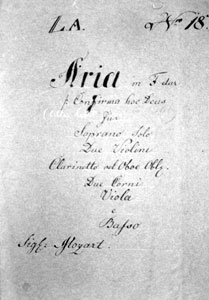 L.A. No 18.
Aria in F dur
Confirma hoc Deus
für
Soprano Solo
Due Violini
Clarinetto ool Oboe Obl:
Due Corni
Viola
e
Basso
Sigl: Mozart.